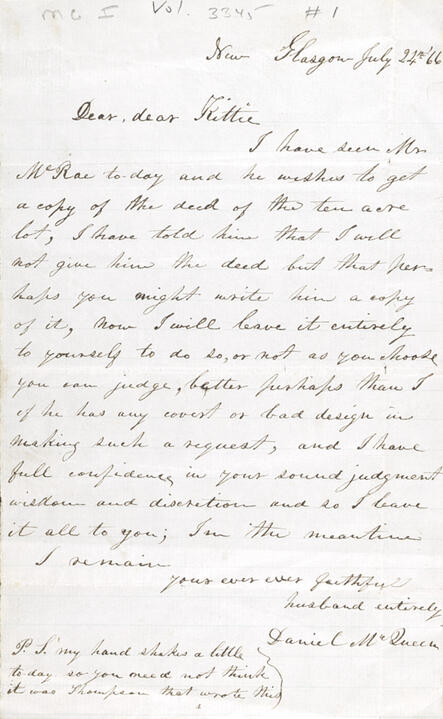 MG I Vol. 3345 #1
New Glasgow July 24th '66
Dear, dear Kittie
I have seen Mr.
McRae to-day and he wishes to get
a copy of the deed of the ten acre
lot, I have told him that I will
not give him the deed but that per-
haps you might write him a copy
of it, now I will leave it entirely
to yourself to do so, or not as you choose
you can judge, better perhaps than I
if he has any covert or bad design in
making such a request, and I have
full confidence in your sound judgment
wisdom and discretion and so I leave
it all to you; In the meantime
I remain
your ever ever faithful
husband entirely
Daniel McQueen
P.S. my hand shakes a little
to-day so you need not think
it was Thompson that wrote this